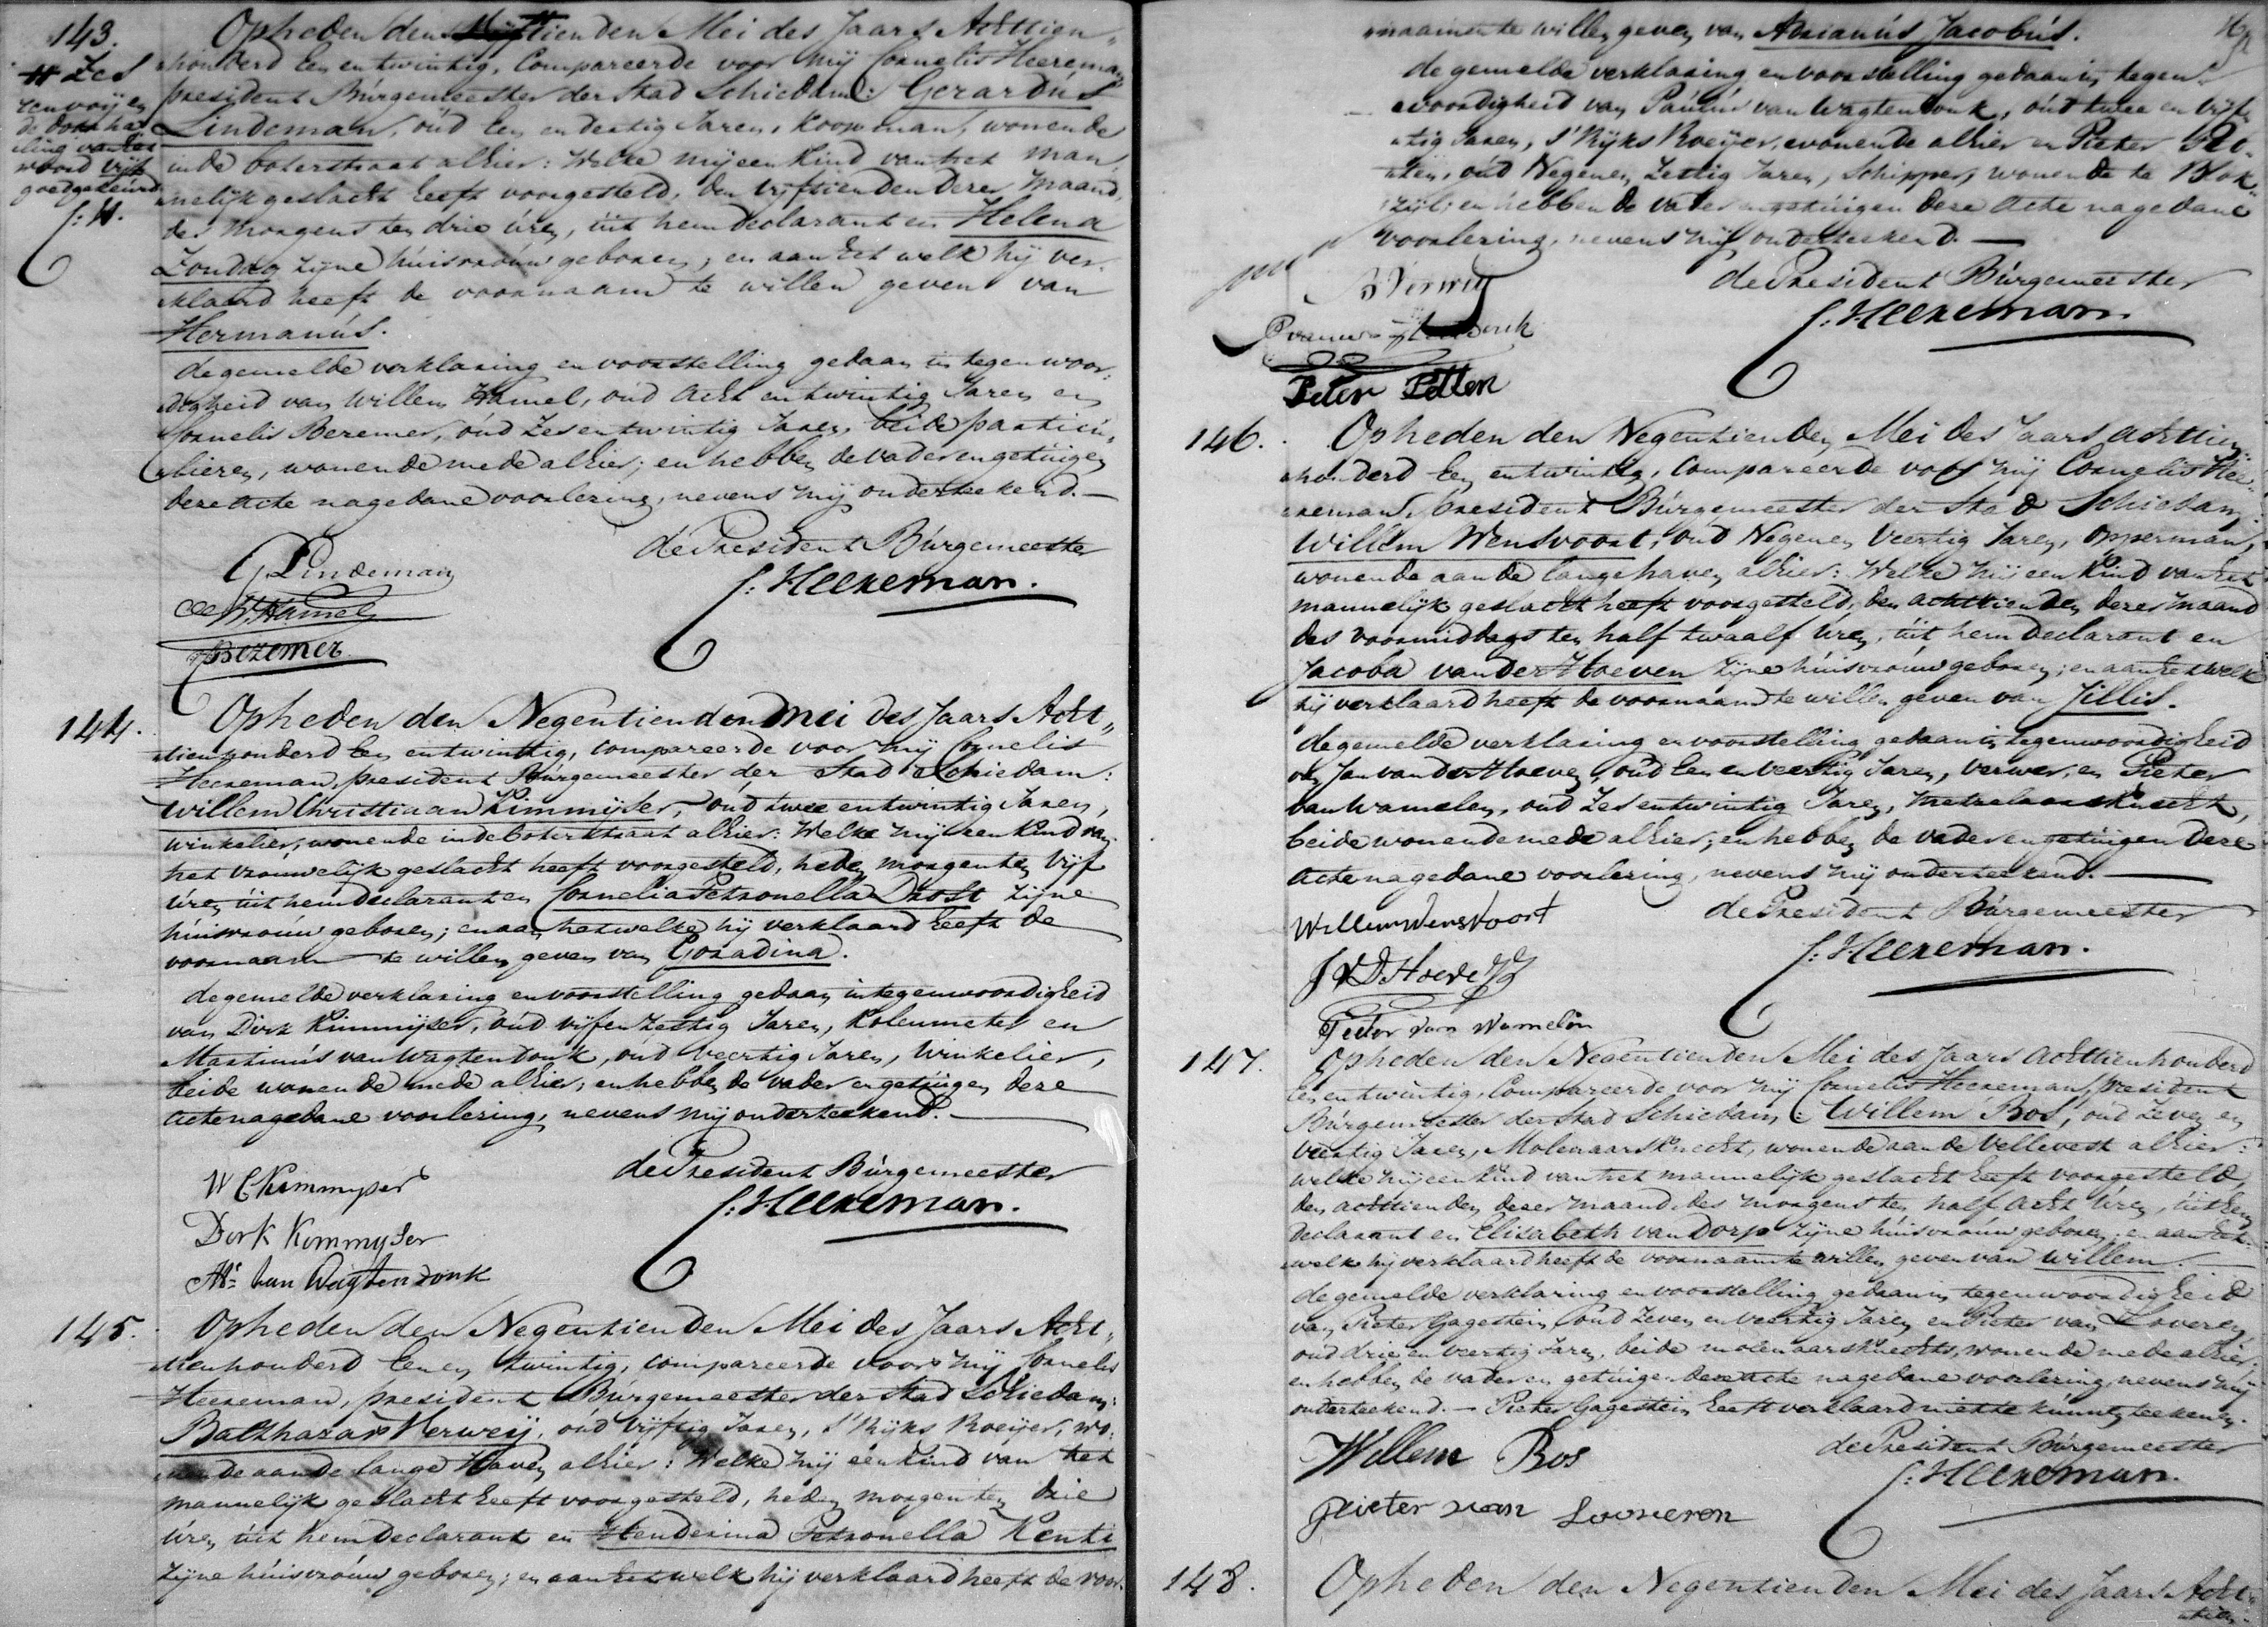 143.
Op heden den Vijftienden Mei des Jaars Achttien„
honderd Een en twintig, Compareerde voor mij Cornelis Heereman
president Burgemeester der Stad Schiedam: Gerardus
Lindeman, oud Een en dertig Jaren, Koopman, wonende
in de boterstraat alhier: Welke mij een Kind van het man„
nelijk geslacht heeft voorgesteld, den vijftienden dezer Maand,
des Morgens ten drie uren, uit hem declarant en Helena
Zondag zijne huisvrouw geboren; en aan het welk hij ver„
klaard heeft de voornaam te willen geven van
Hermanus.
de gemelde verklaring en voorstelling gedaan in tegenwoor„
digheid van Willem Hamel, oud Acht en twintig Jaren en
Cornelis Bezemer, oud Zes en twintig Jaren, beide particu„
lieren, wonende mede alhier; en hebben de vader en getuigen
deze Acte na gedane voorlezing, nevens mij onderteekend.
# Zes
tien voijen
de doorha„
ling van het
woord vijf
goedgekeurd
C: H.
de President Burgemeester
C: Heereman.
G Lindeman
W. Hamel
C Bezemer
144.
Op heden den Negentienden Mei des Jaars Acht„
tienhonderd Een en twintig, compareerde voor mij Cornelis
Heereman, president Burgemeester der Stad Schiedam:
Willem Christiaan Kimmijser, oud twee en twintig Jaren,
winkelier, wonende in de boterstraat alhier: Welke mij een Kind van
het vrouwelijk geslacht heeft voorgesteld, heden morgen ten Vijf
uren uit hem declarant en Cornelia Petronella Drost zijne
huisvrouw geboren; en aan het welke hij verklaard heeft de
voornaam te willen geven van Goradina.
de gemelde verklaring en voorstelling gedaan in tegenwoordigheid
van Dirk Kimmijser, oud vijf en Zestig Jaren, Kolenmeter en
Martinus van Wagtendonk, oud Veertig Jaren, Winkelier,
beide wonende mede alhier; en hebben de vader en getuigen deze
Acte na gedane voorlezing, nevens mij onderteekend.
de President Burgemeester
C: Heereman.
W C Kimmyser
Dirk Kimmyser
Ms. van Wagtendonk
145.
Op heden den Negentienden Mei des Jaars Acht„
tienhonderd Een en twintig, compareerde voor mij Cornelis
Heereman, president Burgemeester der Stad Schiedam:
Balthazar Verweij, oud Vijftig Jaren, S'Rijks Roeijer, wo„
nende aan de lange Haven alhier: Welke mij een Kind van het
mannelijk geslacht heeft voorgesteld, heden morgen ten drie
uren uit hem declarant en Henderina Petronella Rente
zijne huisvrouw geboren; en aan het welk hij verklaard heeft de voor„
naamen te willen geven van Adrianus Jacobus.
de gemelde verklaring en voorstelling gedaan in tegen„
woordigheid van Paulus van Wagtendonk, oud twee en vijf„
tig Jaren, S'Rijks Roeijer, wonende alhier en Pieter Pet„
ten, oud Negen en Zestig Jaren, Schipper, wonende te Blok„
zijl; en hebben de vader en getuigen deze Acte na gedane
voorlezing, nevens mij onderteekend.
de President Burgemeester
C: Heereman.
B Verweij
Peter Petten
146.
Op heden den Negentienden Mei des Jaars Achttien„
honderd Een en twintig, Compareerde voor mij Cornelis Hee„
reman, president Burgemeester der Stad Schiedam:
Willem Wensvoort, oud Negen en Veertig Jaren, Opperman,
wonende aan de lange haven alhier: Welke mij een Kind van het
mannelijk geslacht heeft voorgesteld, den achttienden dezer maand
des voormiddags ten half twaalf Uren, uit hem declarant en
Jacoba van der Hoeven zijne huisvrouw geboren; en aan het welk
hij verklaard heeft de voornaam te willen geven van Jillis.
de gemelde verklaring en voorstelling gedaan in tegenwoordigheid
van Jan van der Hoeven, oud Een en veertig Jaren, Verwer, en Pieter
van Wamelen, oud Zes en twintig Jaren, Metzelaarsknecht,
beide wonende mede alhier; en hebben de vader en getuigen deze
Acte na gedane voorlezing, nevens mij onderteekend.
de President Burgemeester
C: Heereman.
Willem Wensvoort
J V D Hoeve
Pieter van Wamelen
147.
Op heden den Negentienden Mei des Jaars Achttienhonderd
Een en twintig, Compareerde voor mij Cornelis Heereman, President
Burgemeester der Stad Schiedam: Willem Bos, oud Zeven en
Veertig Jaren, Molenaarsknecht, wonende aan de Vellevest alhier:
welke mij een Kind van het mannelijk geslacht heeft voorgesteld,
den achttienden dezer maand des morgens ten half acht Uren, uit hem
declarant en Elisabeth van Dorp zijne huisvrouw geboren; en aan het
welk hij verklaard heeft de voornaam te willen geven van Willem.
de gemelde verklaring en voorstelling gedaan in tegenwoordigheid
van Pieter Gagestein, oud Zeven en veertig Jaren en Pieter van Loveren,
oud drie en veertig Jaren, beide molenaarsknechts, wonende mede alhier;
en hebben de vader en getuigen deze acte na gedane voorlezing, nevens mij
onderteekend. — Pieter Gagestein heeft verklaard niet te kunnen teekenen.
de President Burgemeester
C: Heereman.
Willem Bos
Pieter van Looveren
148.
Op heden den Negentienden Mei des Jaars Acht„